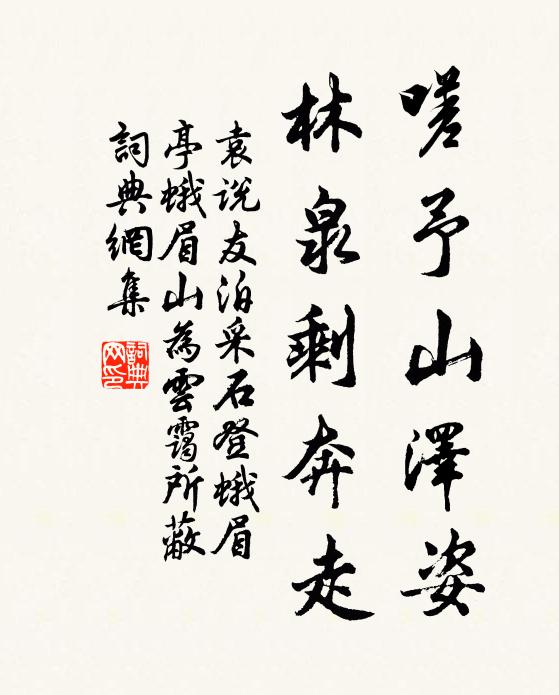 嗟予山澤姿
林泉剩奔走
袁说友泊采石登蛾眉
亭蛾眉山為雲靄所蔽
詞典網集
詞典
网印